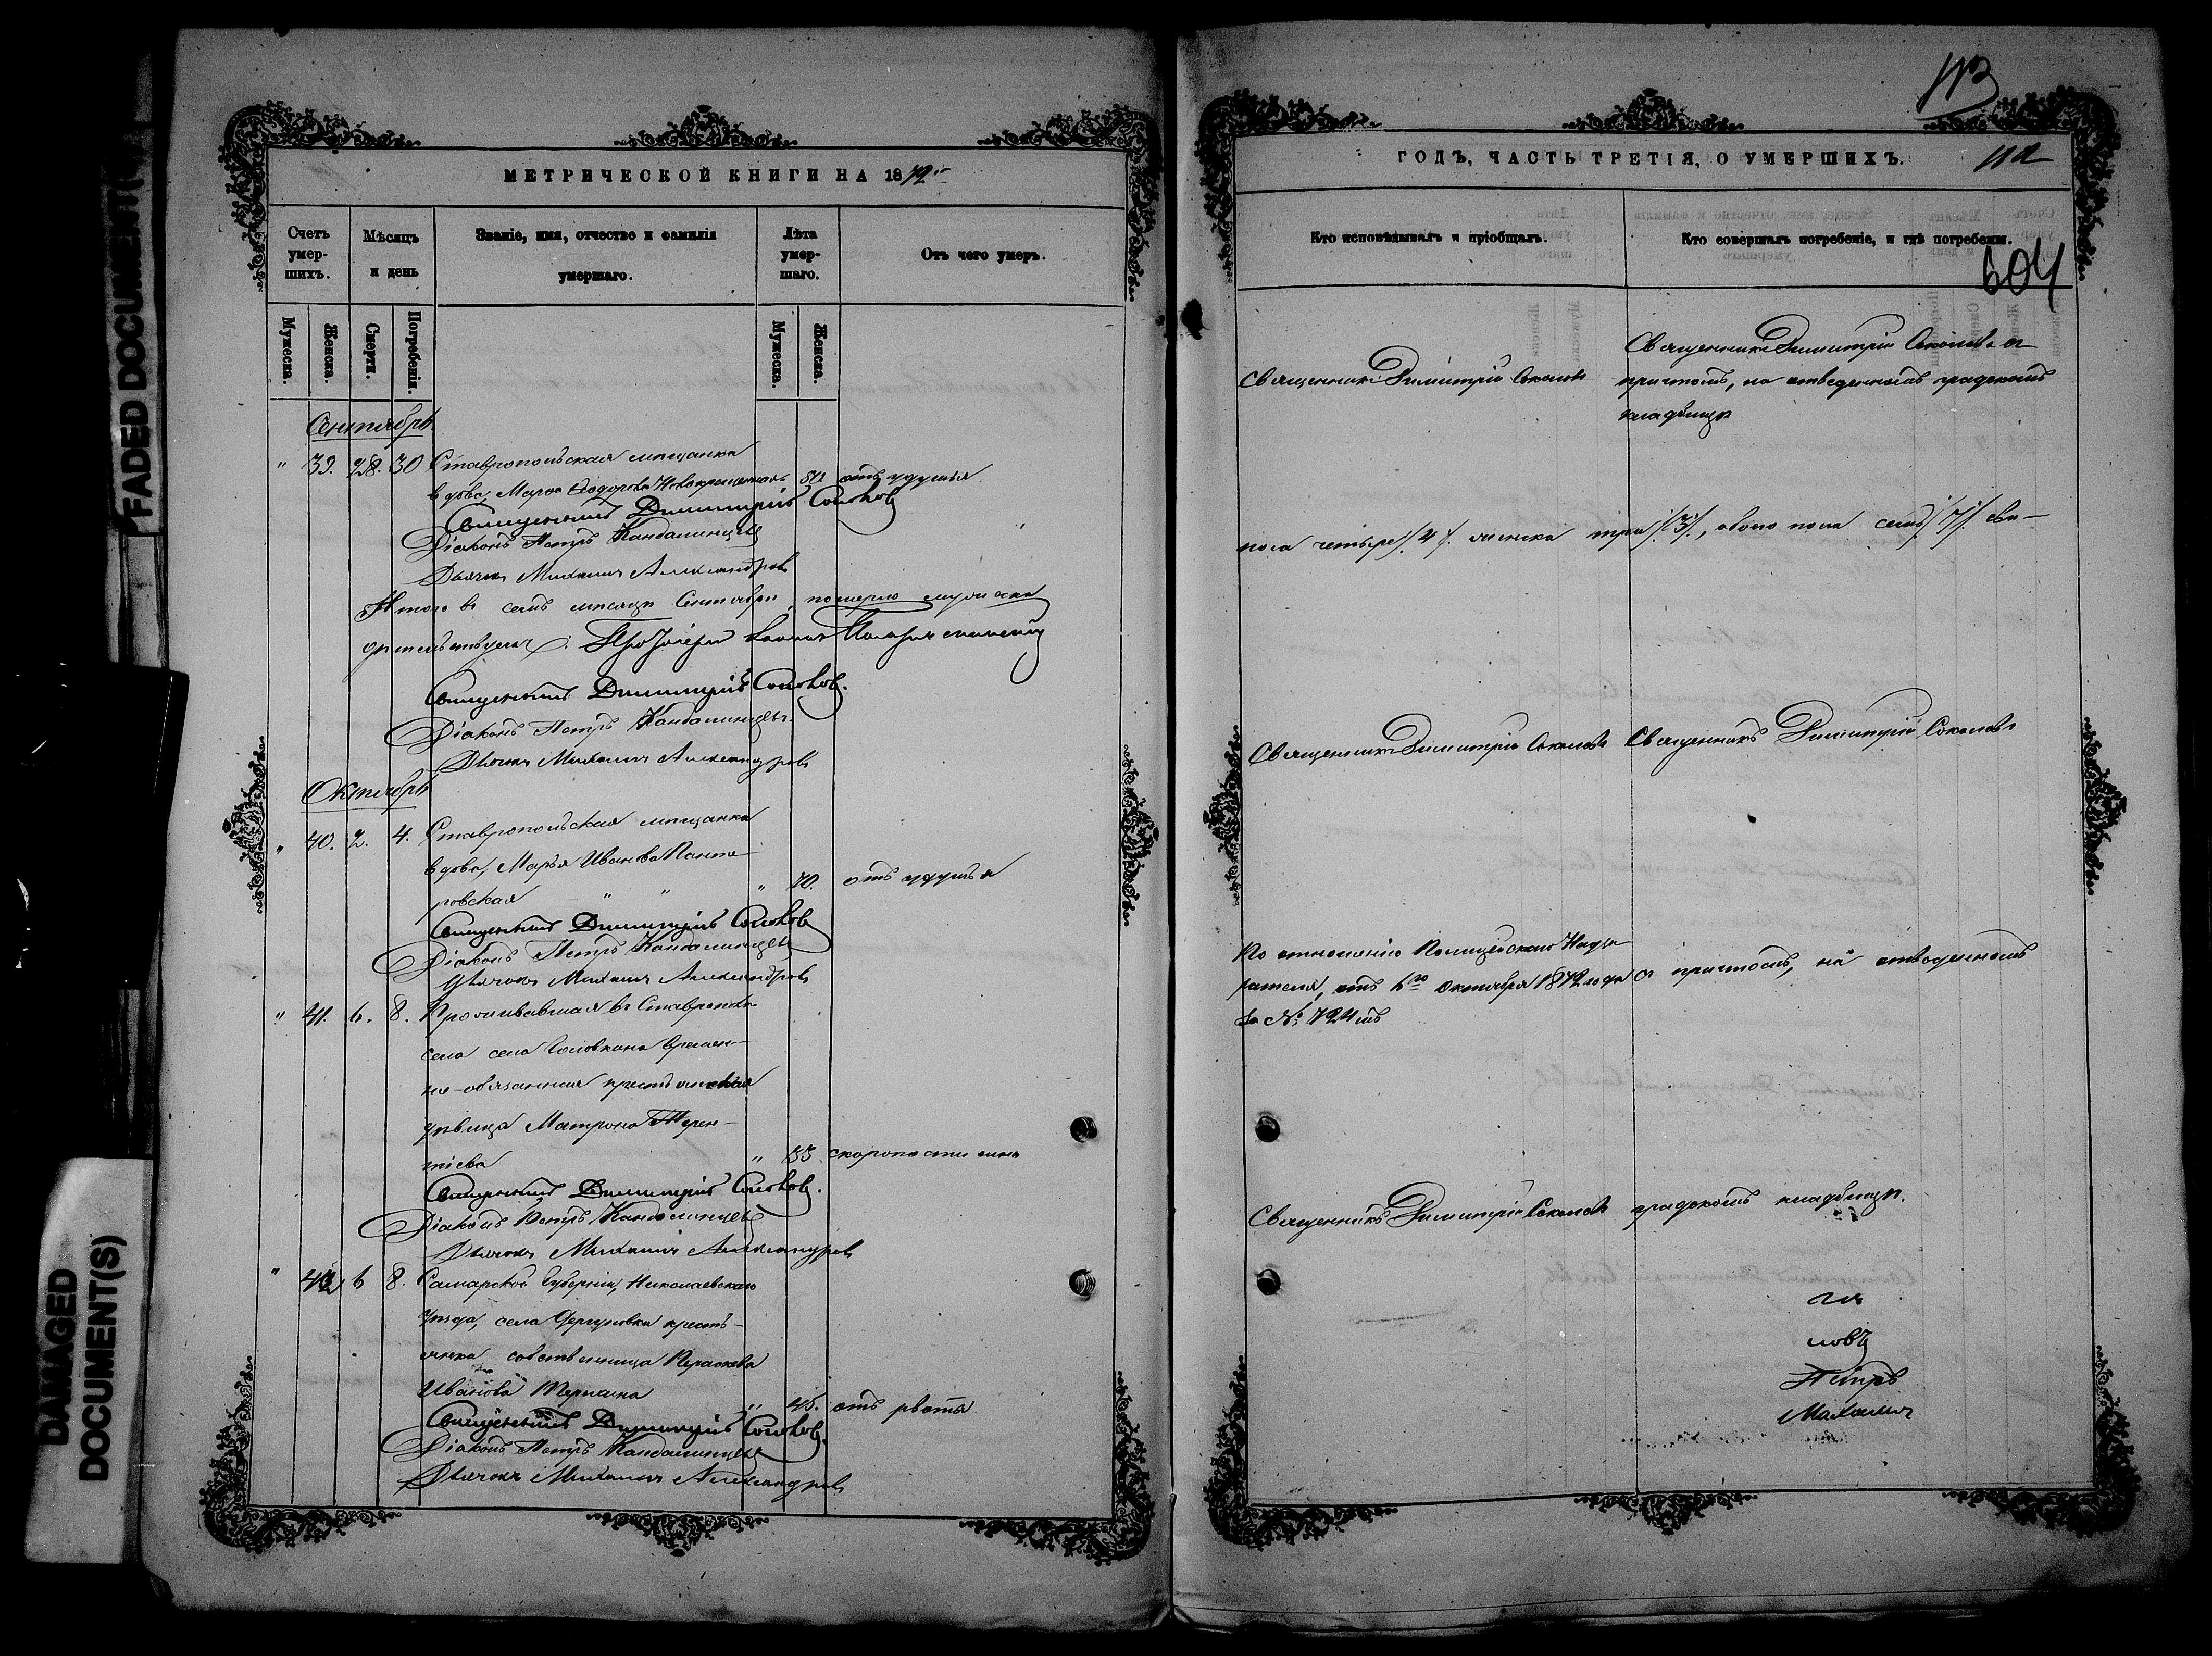 113
МЕТРИЧЕСКОЙ КНИГИ НА 1872й
ГОДЪ, ЧАСТЬ ТРЕТІЯ, О УМЕРШИХЪ.
112
Счетъ умер-шихъ.
Мѣсяцъ и день
Званіе, имя, отчество и фамилія умершаго.
Лѣта умер-шаго.
Отъ чего умеръ.
Мужеска.
Женска.
Смерти.
Погребенія.
Мужеска.
Женска.
Сентябрь
" 39. 28. 30 Ставропольская мѣщанка
вдова, Марѳа Ѳеодорова отъ удушья
Священникъ Димитрій Соколовъ
Діаконъ Петръ Кандалинцевъ
Дьячокъ Михаилъ Александровъ
Итого въ семъ мѣсяцѣ Сентябрѣ померло мужеска
дѣтельствуемъ: Протоіерей
Священникъ Димитрій Соколовъ.
Діаконъ Петръ Кандалинцевъ.
Дьячокъ Михаилъ Александровъ
Октябрь
" 40. 2. 4. Ставропольская мѣщанка
вдова, Марья Иванова Панте-
ровская " " " 70. отъ удушья
Священникъ Димитрій Соколовъ
Діаконъ Петръ Кандалинцевъ
Дьячокъ Михаилъ Александровъ
" 41. 6. 8. Проживавшая въ Ставрополѣ
села села Головкина времен-
но-обязанная крестьянская
дѣвица Матрона Терен-
тіева " 33 скоропостижно
Священникъ Димитрій Соколовъ.
Діаконъ Петръ Кандалинцевъ
Дьячокъ Михаилъ Александровъ
" 42 6 8. Самарской Губерніи, Николаевскаго
уѣзда, села Дергуновки кресть-
янка собственница Параскева
Иванова " 45. отъ рвоты
Священникъ Димитрій Соколовъ.
Діаконъ Петръ Кандалинцевъ
Дьячокъ Михаилъ Александровъ
Кто исповѣдывалъ и пріобщалъ.
Кто совершалъ погребеніе, и гдѣ погребены.
604
Священникъ Димитрій Соколовъ
Священникъ Димитрій Соколовъ съ
причтомъ, на отведенномъ градскомъ
кладбищѣ
пола четыре /4/. женска три /3/, обоего пола семь /7/. сви-
Священникъ Димитрій Соколовъ Священникъ Димитрій Соколовъ
По отношенію Полицейскаго Надзи-
рателя, отъ 6го Октября 1872 года съ причтомъ, на отведенномъ
за № 724мъ
Священникъ Димитрій Соколовъ градскомъ кладбищѣ.
ловъ
Петръ
Михаилъ
FADED DOCUMENT(S)
DAMAGED
DOCUMENT(S)